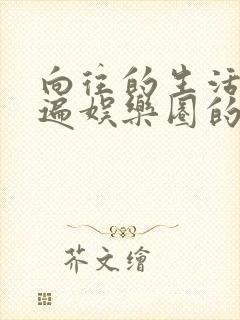 向往的生活
遍娱樂圈的
芥文繪